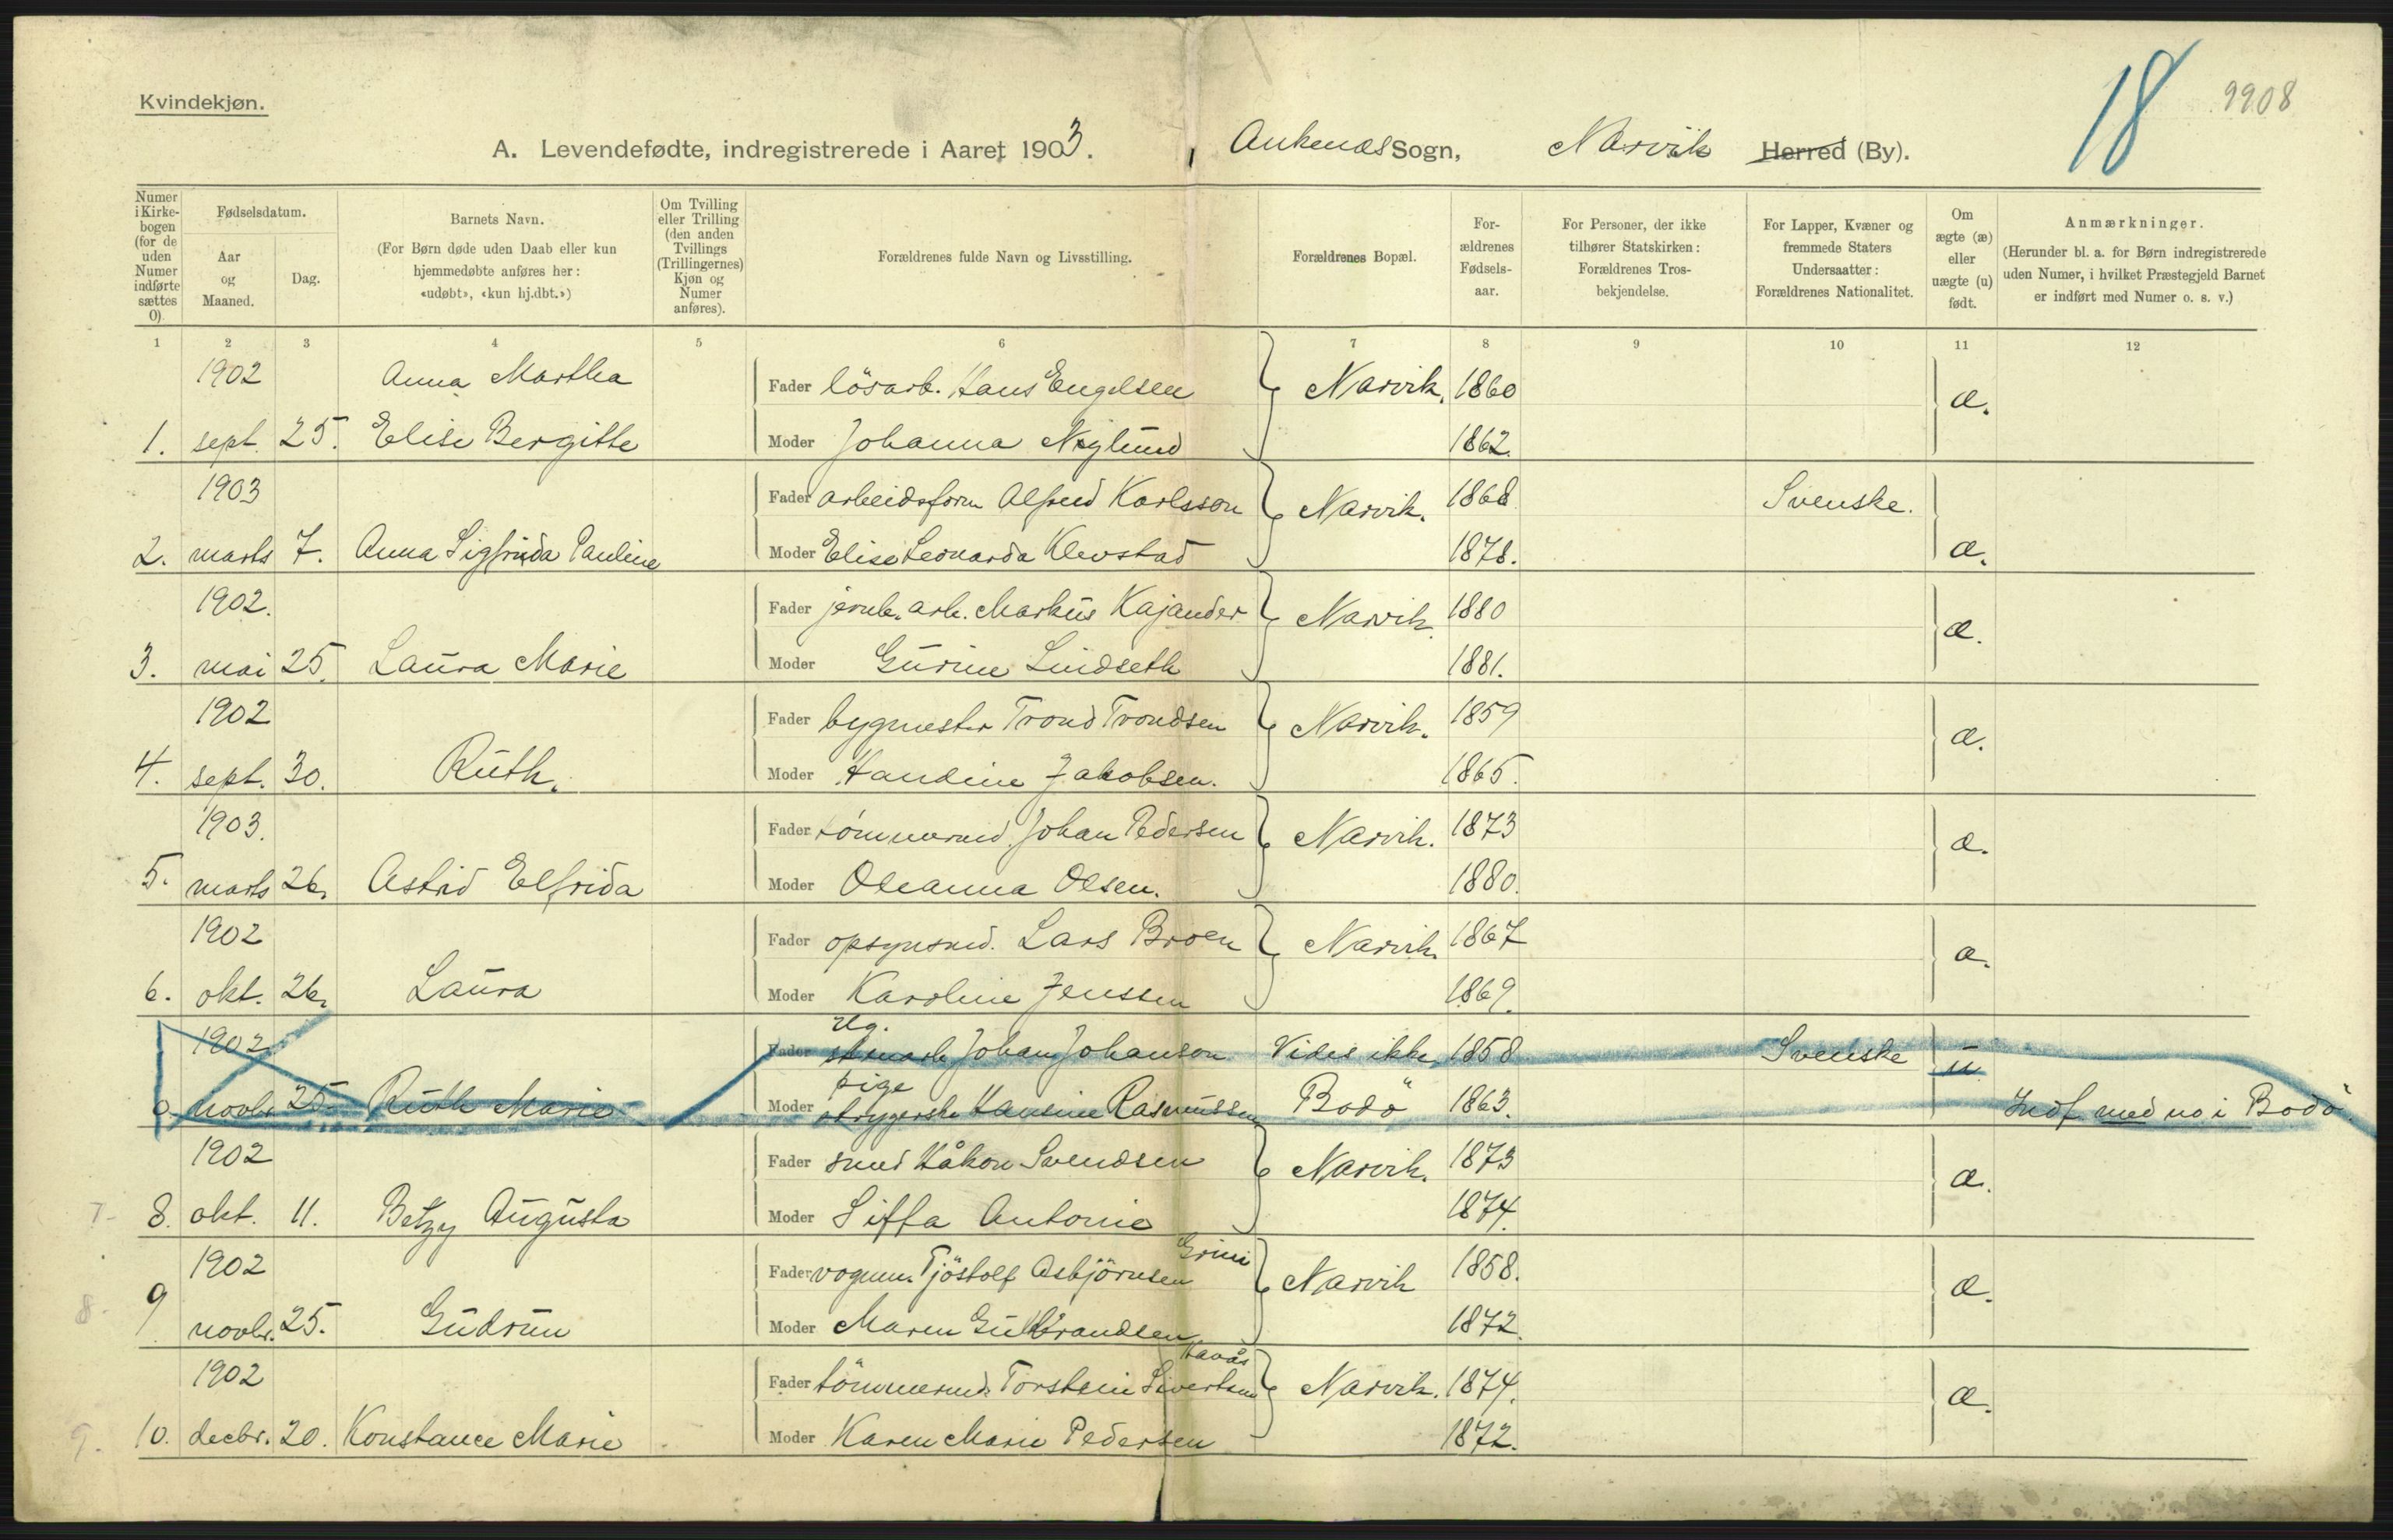 Kvindekjøn.
18
9908
A. Levendefødte, indregistrerede i Aaret 1903. Ankenæs Sogn, Narvik Herred (By).
Numer i Kirkebogen (for de uden Numer indførte sættes 0).
Fødselsdatum.
Aar og Maaned.
Dag.
Barnets Navn.
(For Børn døde uden Daab eller kun hjemmedøbte anføres her: «udøbt», «kun hj.dbt.»)
Om Tvilling eller Trilling (den anden Tvillings (Trillingernes) Kjøn og Numer anføres).
Forældrenes fulde Navn og Livsstilling.
Forældrenes Bopæl.
Forældrenes Fødselsaar.
For Personer, der ikke tilhører Statskirken: Forældrenes Trosbekjendelse.
For Lapper, Kvæner og fremmede Staters Undersaatter: Forældrenes Nationalitet.
Om ægte (æ) eller uægte (u) født.
Anmærkninger.
(Herunder bl. a. for Børn indregistrerede uden Numer, i hvilket Præstegjeld Barnet er indført med Numer o. s. v.)
1 2 3 4 5 6 7 8 9 10 11 12
1902 Anna Martha Fader lösarb. Hans Engelsen Narvik. 1860 æ.
1. sept. 25. Elise Bergitte Moder Johanna Nyglund 1862.
1903 Fader arbeidsform Alfred Karlsson Narvik. 1868 Svenske.
2. marts 7. Anna Sigfrida Pauline Moder Elise Leonarda Klevstad 1878. æ.
1902. Fader jernb. arb. Markus Kajander Narvik. 1880 æ.
3. mai 25. Laura Marie Moder Gurine Lindseth 1881.
1902 Fader bygmester Trond Trondsen Narvik. 1859 æ.
4. sept. 30. Ruth. Moder Handine Jakobsen. 1865.
1903. Fader tömmermd. Johan Pedersen Narvik. 1873 æ.
5. marts 26. Astrid Elfrida Moder Oleanna Olsen. 1880.
1902 Fader opsynsmd. Lars Broen Narvik. 1867 æ.
6. okt. 26. Laura Moder Karoline Jenssen 1869.
1902 Fader Ug. Johan Johanson Vides ikke 1858 Svenske u
0. novbr. 25. Ruth Marie Moder pige strygerske Hansine Rasmussen Bodö 1863. Indf med no i Bodö
1902 Fader smed Håkon Svendsen Narvik. 1873 æ.
7- 8. okt. 11. Betzy Augusta Moder Siffa Antonie 1874.
1902 Fader vognm. Tjöstolf Asbjörnsen Grini Narvik 1858. æ.
8- 9 novbr. 25. Gudrun Moder Maren Gulbrandsen 1872.
1902 Fader tömmermd. Torstein Sivertsen Havås Narvik. 1874. æ.
9- 10. decbr. 20. Konstance Marie Moder Karen Marie Pedersen 1872.